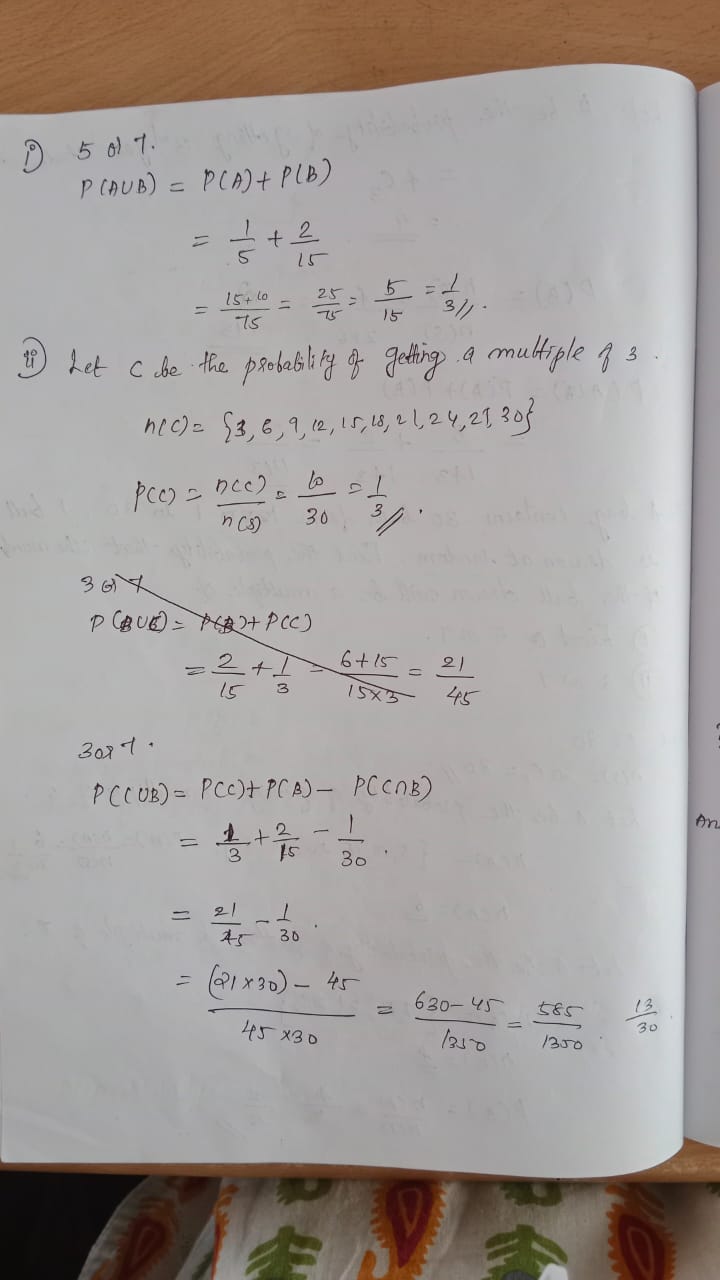 i) 5 or 7.
P(AUB) = P(A) + P(B)
= 1/5 + 2/15
= 15+10/75 = 25/75 = 5/15 = 1/3 //.
ii) Let C be the probability of getting a multiple of 3.
n(C) = {3, 6, 9, 12, 15, 18, 21, 24, 27, 30}
P(C) = n(C)/n(S) = 10/30 = 1/3 //.
3 or 7
P(BUC) = P(B) + P(C)
= 2/15 + 1/3 = 6+15/15x3 = 21/45
3 or 7.
P(CUB) = P(C) + P(B) – P(C∩B)
= 1/3 + 2/15 – 1/30.
= 21/45 – 1/30.
= (21x30) – 45/45x30 = 630–45/1350 = 585/1350. 13/30.
An